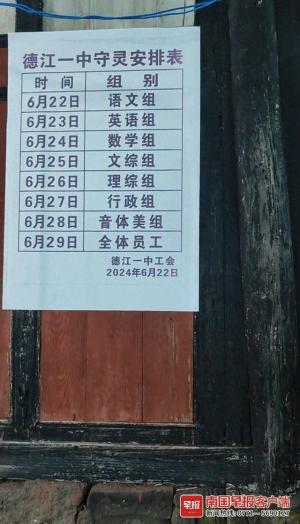 德江一中守灵安排表
时 间 组 别
6月22日 语文组
6月23日 英语组
6月24日 数学组
6月25日 文综组
6月26日 理综组
6月27日 行政组
6月28日 音体美组
6月29日 全体员工
德江一中工会
2024年6月22日
早报 南国早报客户端
新闻热线:0771-5690127